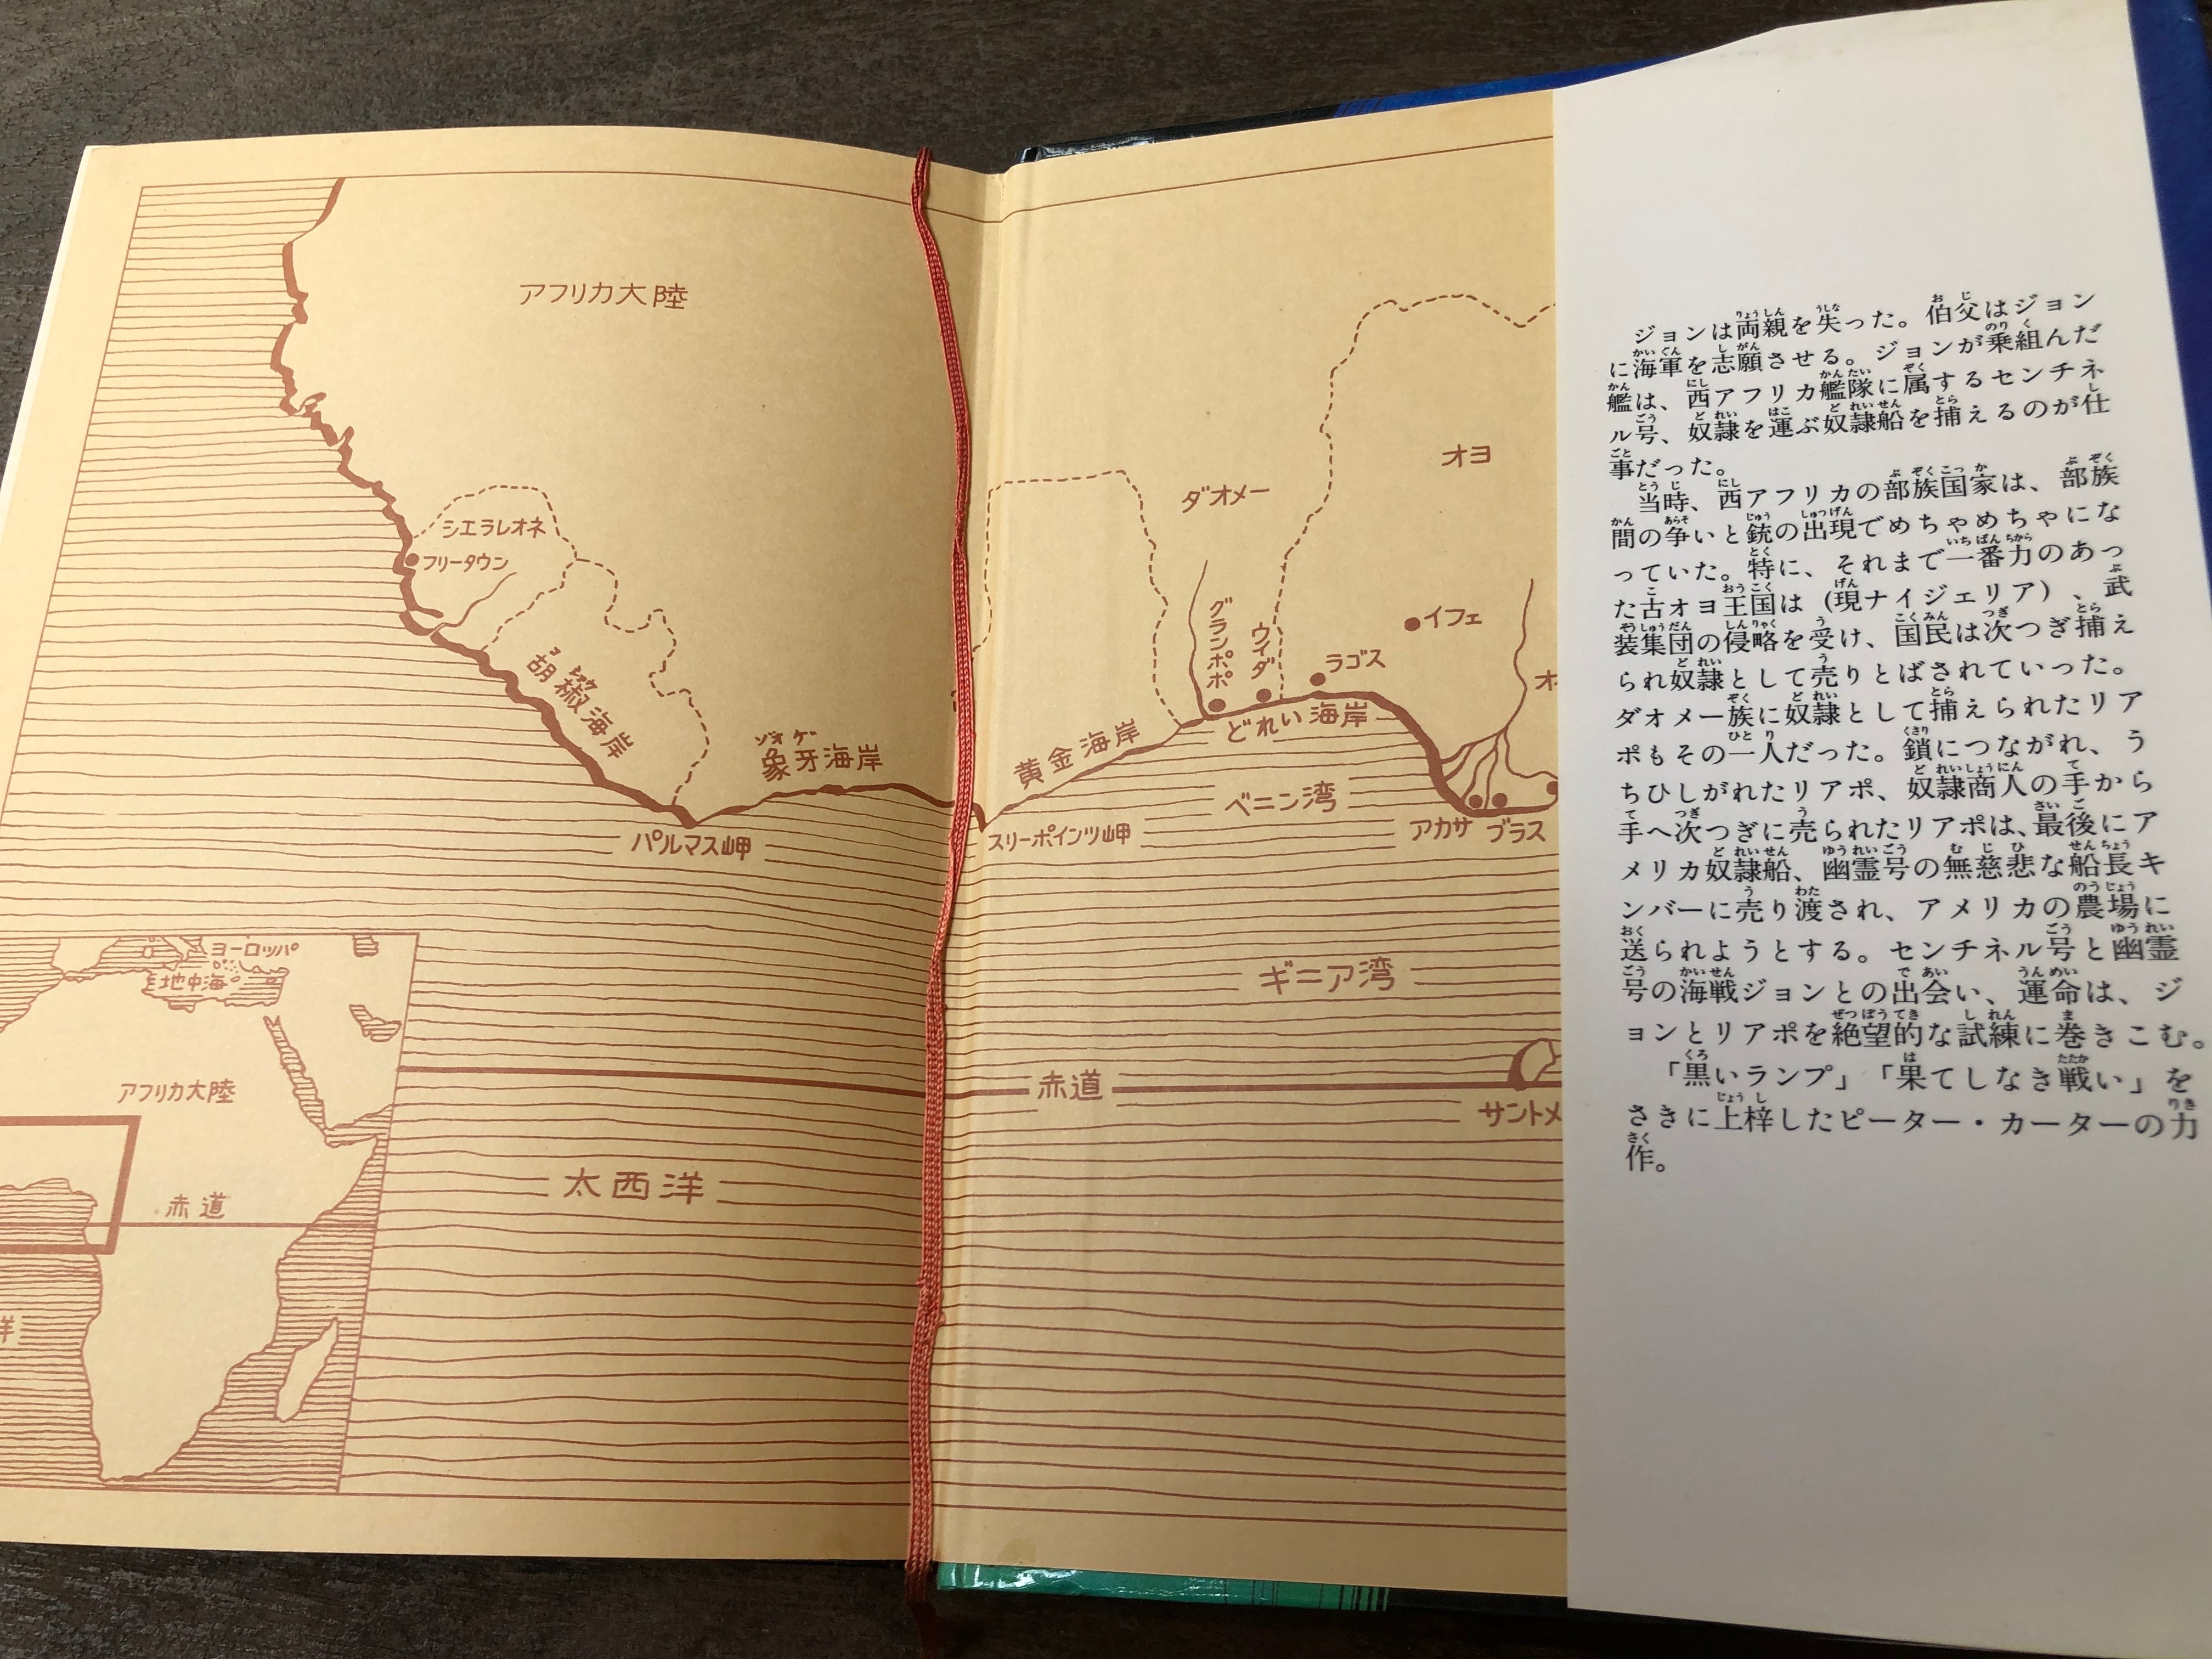 アフリカ大陸
シエラレオネ
フリータウン
胡椒海岸
象牙海岸
パルマス岬
ヨーロッパ
地中海
アフリカ大陸
赤道
洋
太西洋
オヨ
ダオメー
イフェ
グランポポ
ウイダ
ラゴス
オ
黄金海岸
どれい海岸
ベニン湾
スリーポインツ岬
アカサ
ブラス
ギニア湾
赤道
サントメ
ジョンは両親を失った。伯父はジョン
に海軍を志願させる。ジョンが乗組んだ
艦は、西アフリカ艦隊に属するセンチネ
ル号、奴隷を運ぶ奴隷船を捕えるのが仕
事だった。
当時、西アフリカの部族国家は、部族
間の争いと銃の出現でめちゃめちゃにな
っていた。特に、それまで一番力のあっ
た古オヨ王国は（現ナイジェリア）、武
装集団の侵略を受け、国民は次つぎ捕え
られ奴隷として売りとばされていった。
ダオメー族に奴隷として捕えられたリア
ポもその一人だった。鎖につながれ、う
ちひしがれたリアポ、奴隷商人の手から
手へ次つぎに売られたリアポは、最後にア
メリカ奴隷船、幽霊号の無慈悲な船長キ
ンバーに売り渡され、アメリカの農場に
送られようとする。センチネル号と幽霊
号の海戦ジョンとの出会い、運命は、ジ
ョンとリアポを絶望的な試練に巻きこむ。
「黒いランプ」「果てしなき戦い」を
さきに上梓したピーター・カーターの力
作。